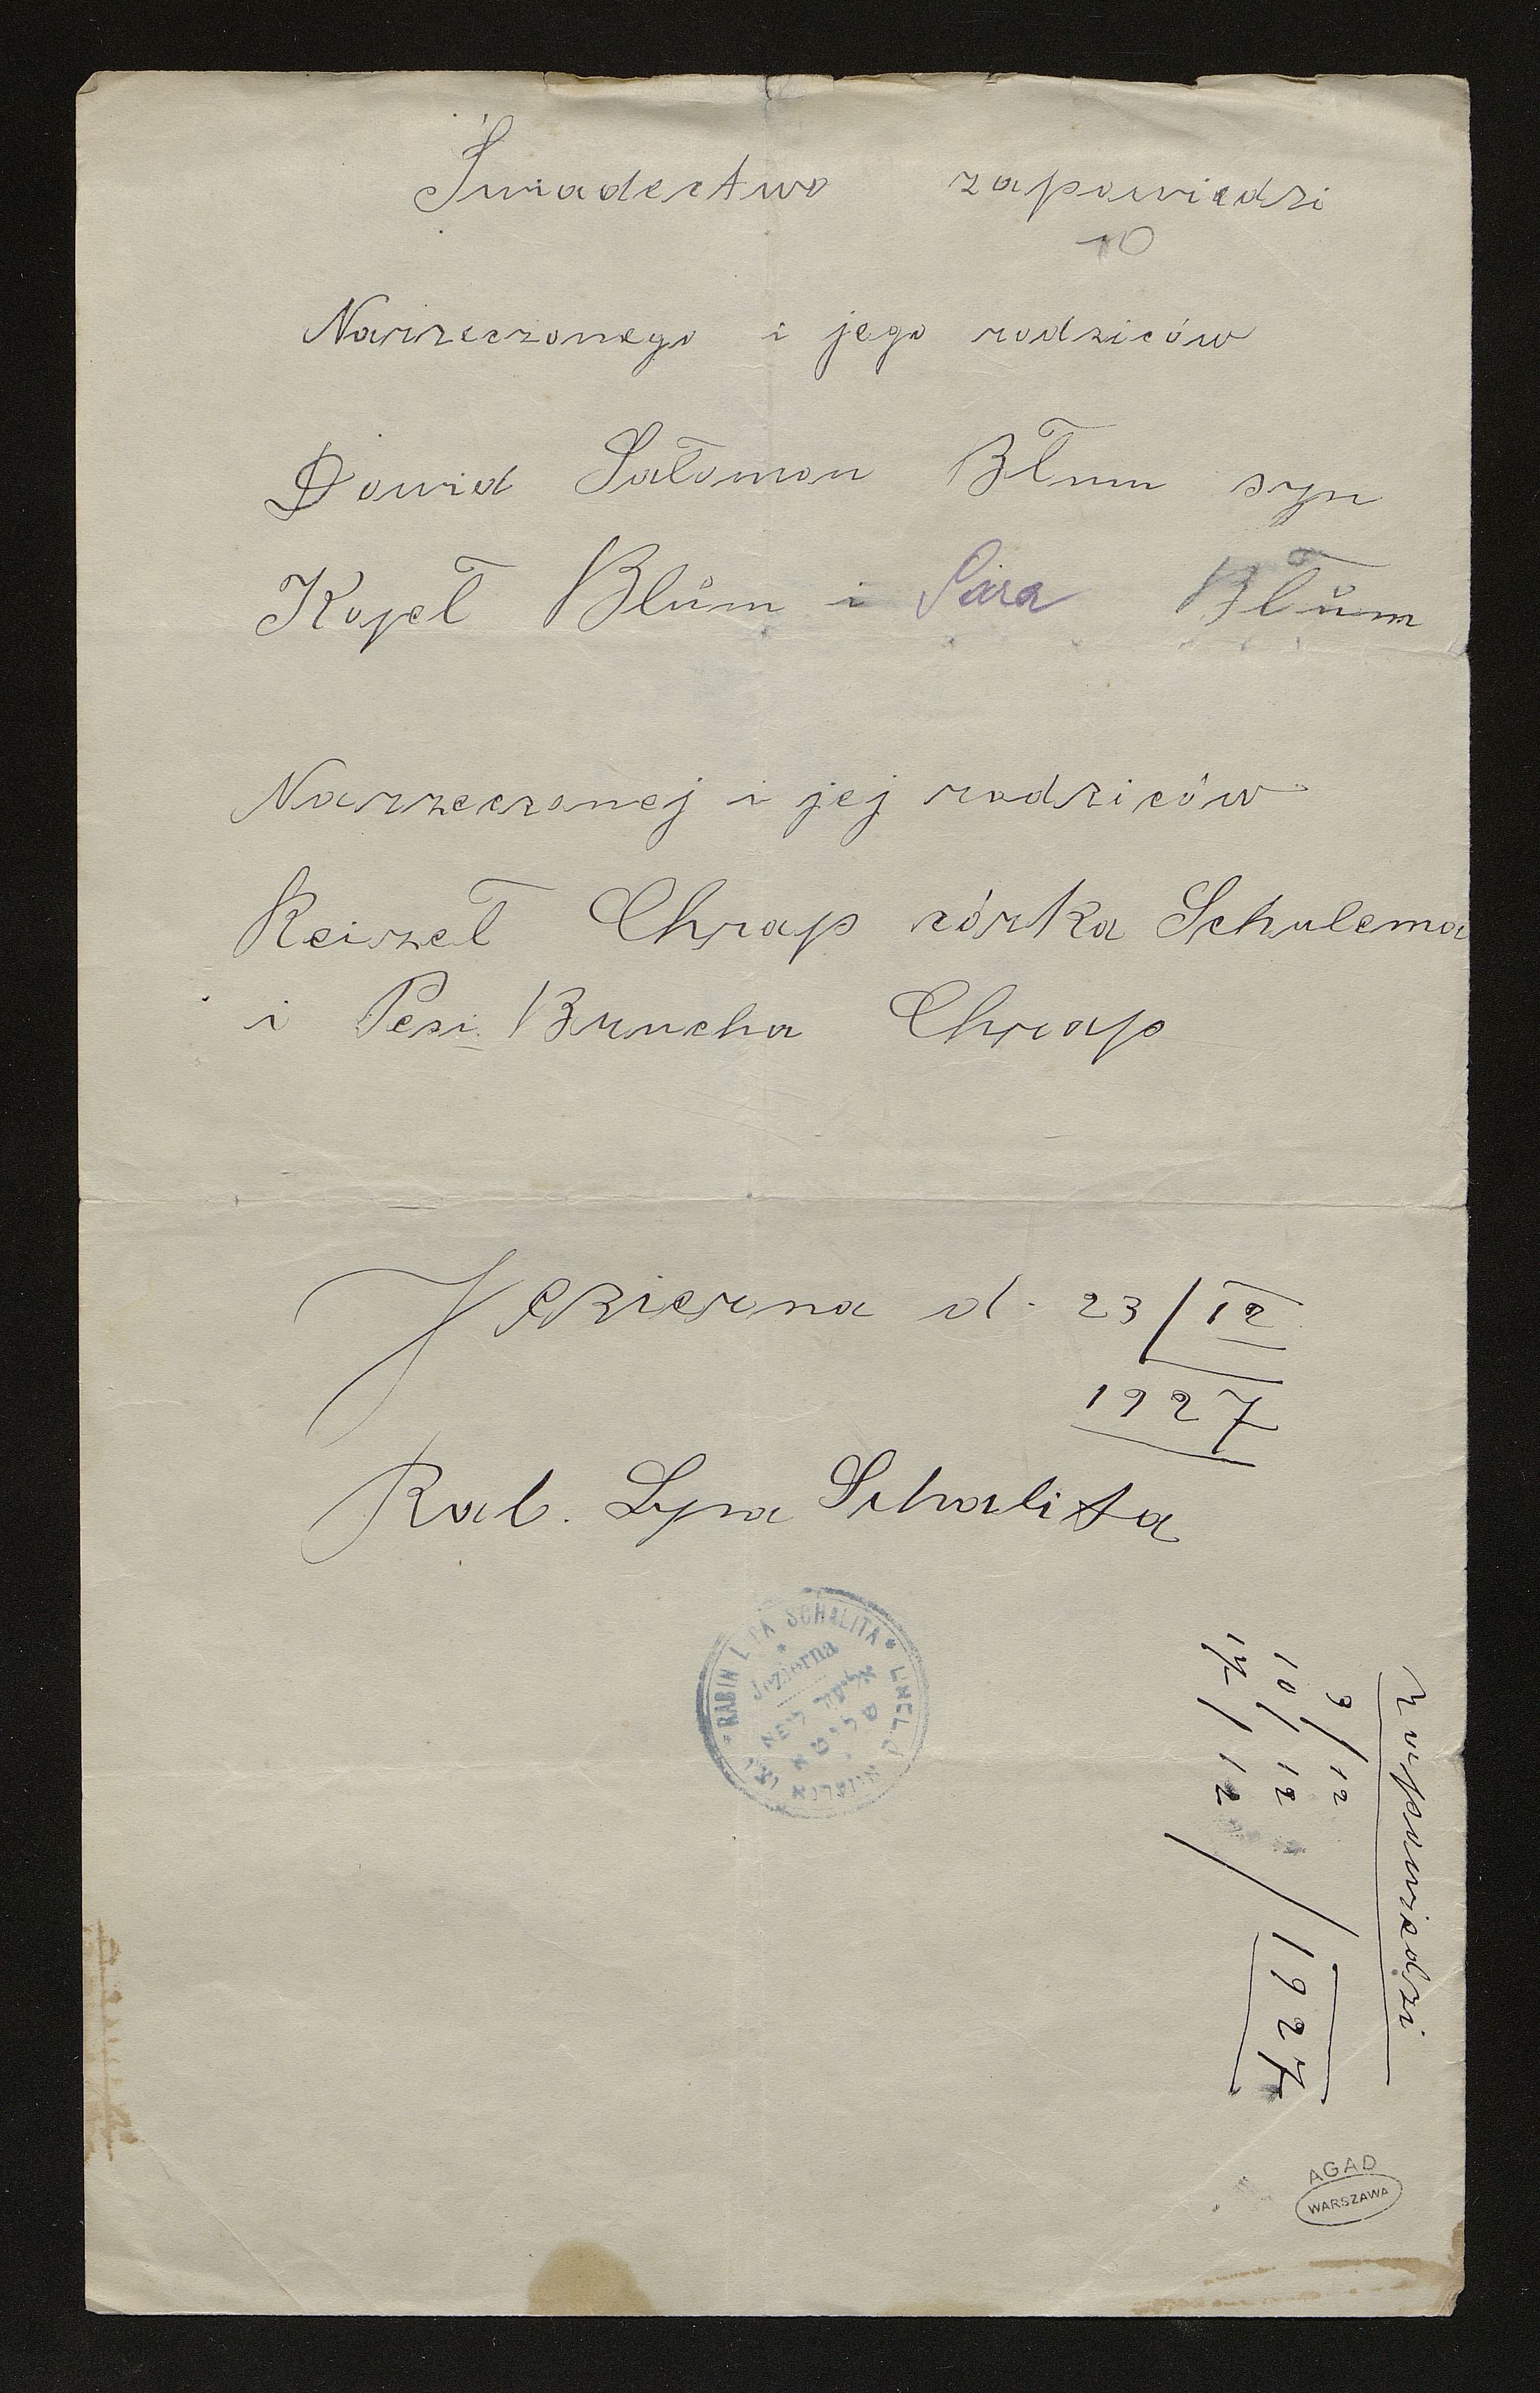 Świadectwo zapowiedzi
10
Narzeczonego i jego rodziców
Dowid Sałomon Błum syn
Kopeł Blŭm i Sara Błŭm
Narzeczonej i jej rodziców
Reiszeł Chrap córka Schulema
i Pesi Brucha Chrap
Jezierna d. 23/12
1927
Rab. Lypa Schalita
* RABIN LIPA SCHALITA *
Jezierna
אליעזר ליפא
שליטא
Zapowiedzi
9/12
10/12
17/12/1927
AGAD
WARSZAWA